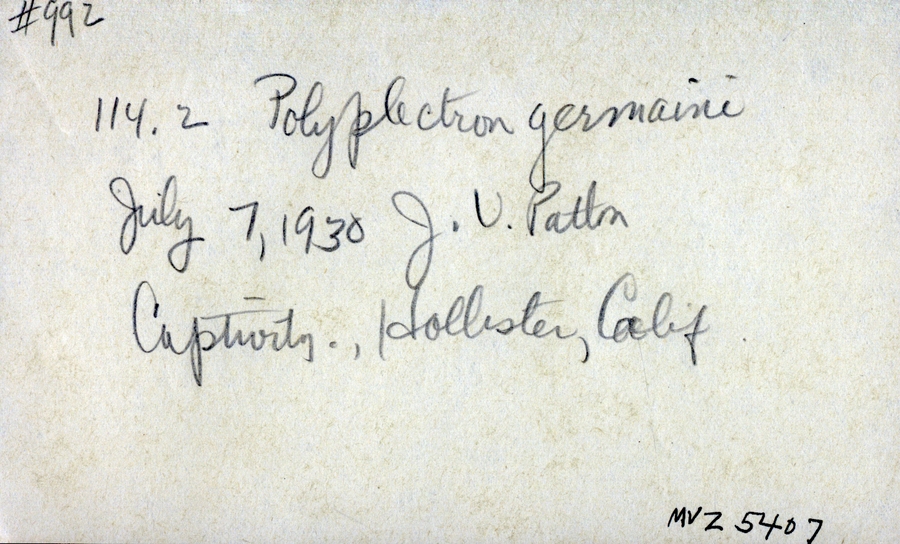 #992
114.2 Polyplectron germaini
July 7, 1930 J. V. Patton
Captivity., Hollister, Calif
MVZ 5407